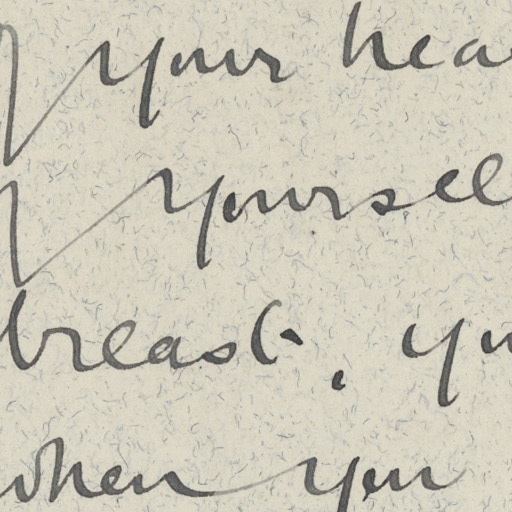 your hea
yoursel
breast, yo
when you